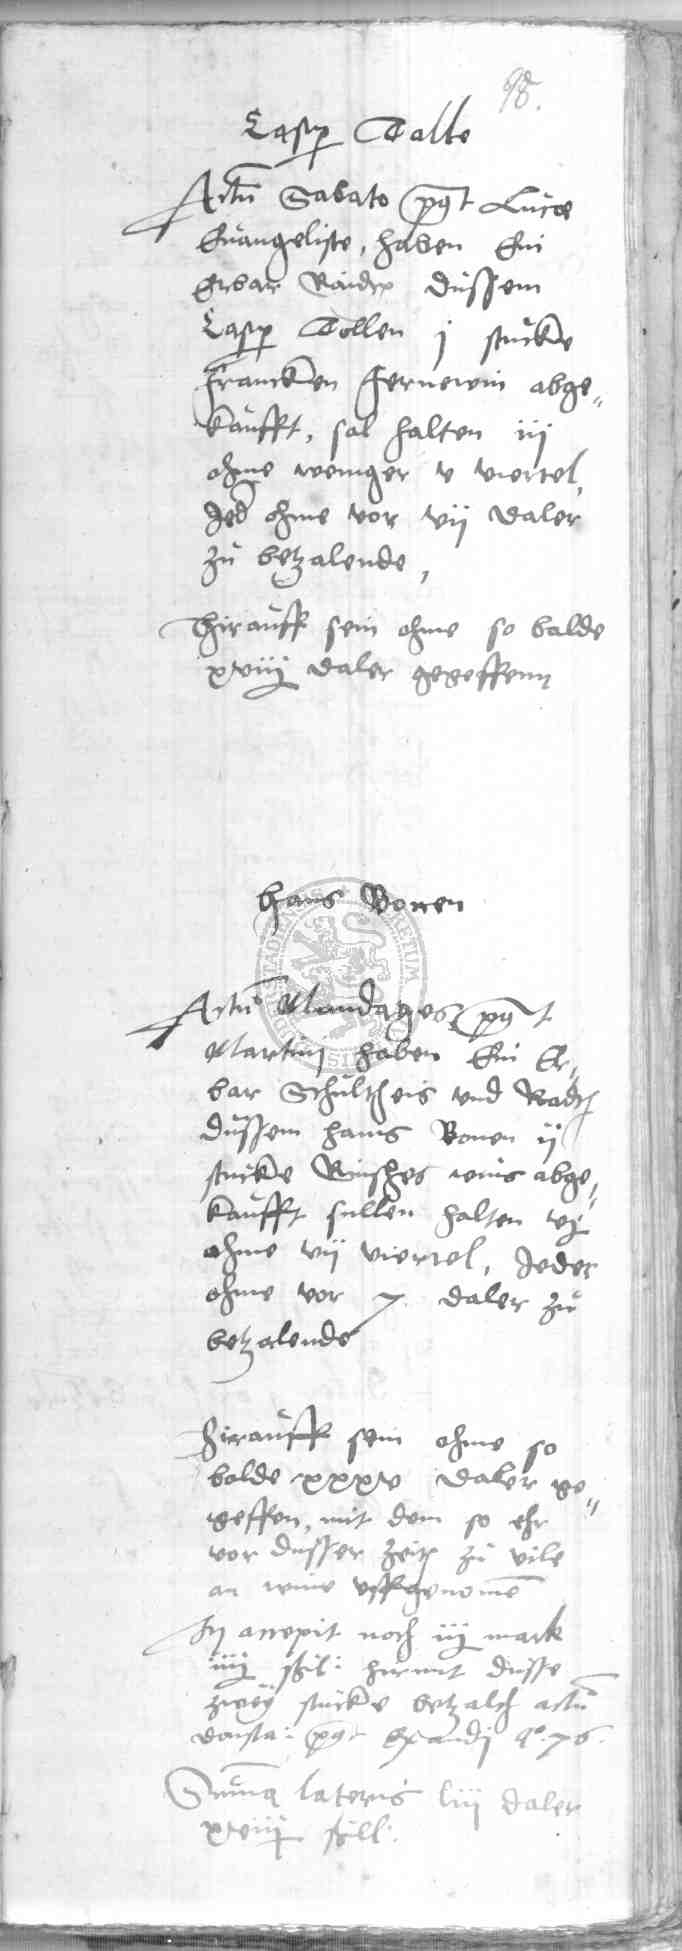 98.
Casp Tolle
Actu Sabato post Luce
Euangeliste, haben Ein
Erbar Raidt dussem
Casp Tollen j stucke
francken fernewin abge„
kaufft, sal halten iij
ohme weniger v viertel,
Jed ohme vor vij daler
zu betzalende,
Hirauff sein ohme so balde
xviij daler gegeffenn
Hans Bonen
Actu Mandages post
Martinj haben Ein Er„
bar Schultheis vnd Radth
dussem hans Bonen ij
stucke Rinsches weins abge„
kaufft sullen halten vj
ohme vij viertel, Jeder
ohme vor 7 daler zu
betzalende
Hirauff sein ohme so
balde xxxv daler ge„
geffen, mit dem so ehr
vor dusser zeit zu vile
an wine vffgenomen
accepit noch iij mark
iiij ßil: hirmit dusse
zwey stucke betzalt actu
donsta: post Exaudj aº. 76.
Suma lateris liij daler
xviij ßill: